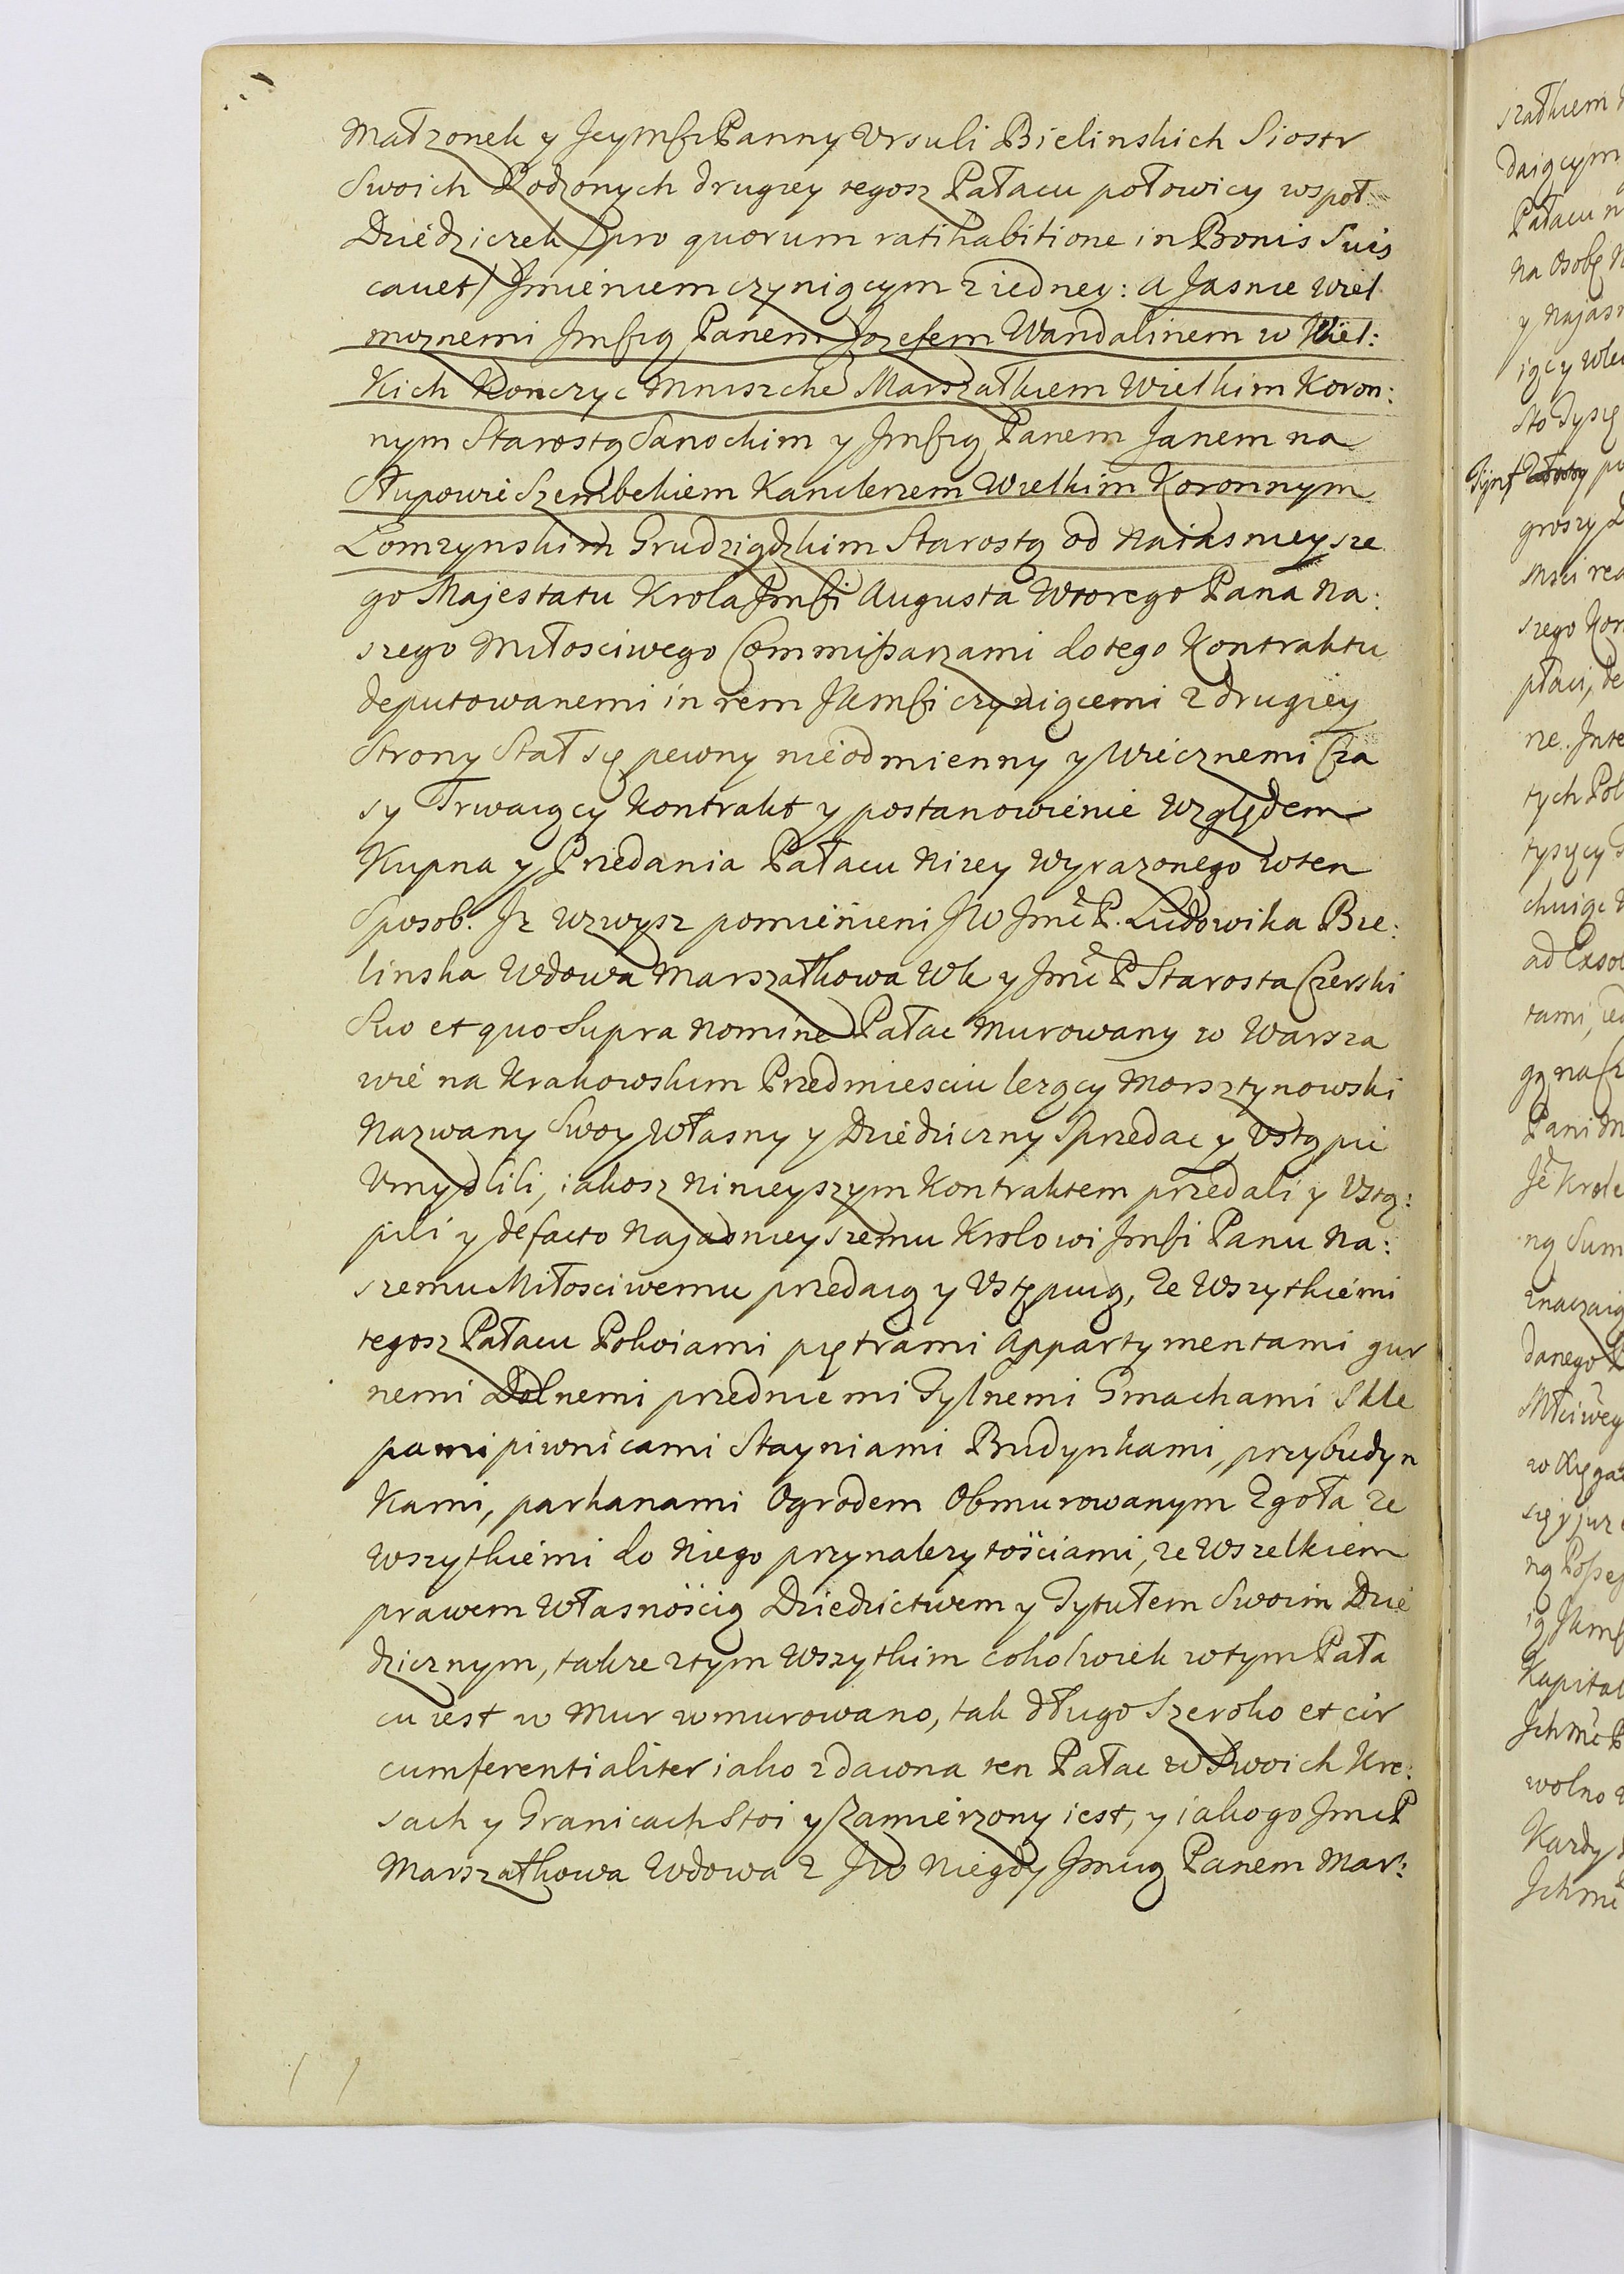 Małzonek y Jeymści Panny Ursuli Bielinskich Siostr
Swoich Rodzonych drugiey tegosz Pałacu połowicy wspoł
Dziedziczek (pro quorum ratihabitione in Bonis Suis
cavet) Jmieniem czyniącym z iedney: a Jasnie Wiel
moznemi Jmścią Panem Jozefem Wandalinem w Wiel:
kich Konczyc Mniszche Marszałkiem Wielkim Koron:
nym Starostą Sanockim y Jmścią Panem Janem na
Słupowie Szembekiem Kanclerzem Wielkim Koronnym
Lomzynskim Grudziądzkim Starostą od Naiasnieysze
go Majestatu Krola Jmści Augusta Wtorego Pana Na:
szego Miłosciwego Commissarzami do tego Kontraktu
deputowanemi in rem JKmści czyniącemi z drugiey
Strony Stał się pewny nieodmienny y wiecznemi Cza
sy Trwaiący Kontrakt y postanowienie Względem
Kupna y Przedania Pałacu nizey wyrazonego w ten
Sposob. Jz wzwysz pomienieni JW Jmc P. Ludowika Bie:
linska Wdowa Marszałkowa Wk y Jmc P Starosta Czerski
Suo et quo Supra nomine Pałac Murowany w Warsza
wie na Krakowskim Przedmiesciu lezący Morsztynowski
Nazwany Swoy Własny y Dziedziczny Sprzedac y Ustąpic
Umyslili, iakosz ninieyszym Kontraktem przedali y Ustą:
pili y de facto Najasnieyszemu Krolowi Jmści Panu Na:
szemu Miłosciwemu przedaią y Ustępuią, Ze Wszytkiemi
tegosz Pałacu Pokoiami piętrami Appartymentami gur
nemi Dolnemi przedniemi Tylnemi Gmachami Skle
pami piwnicami Stayniami Budynkami, przybudyn
kami, parkanami Ogrodem Obmurowanym Zgoła ze
wszytkiemi do Niego przynalezytościami, ze wszelkiem
prawem Własnością Dziedzictwem y Tytułem Swoim Dzie
dzicznym, takze ztym Wszytkim cokolwiek w tym Pała
cu iest w Mur wmurowano, tak długo Szeroko et cir
cumferentialiter iako zdawna ten Pałac w Swoich Kre:
sach y Granicach Stoi y Zamierzony iest, y iako go Jmc P
Marszałkowa Wdowa z JW Niegdy Jmcią Panem Mar: